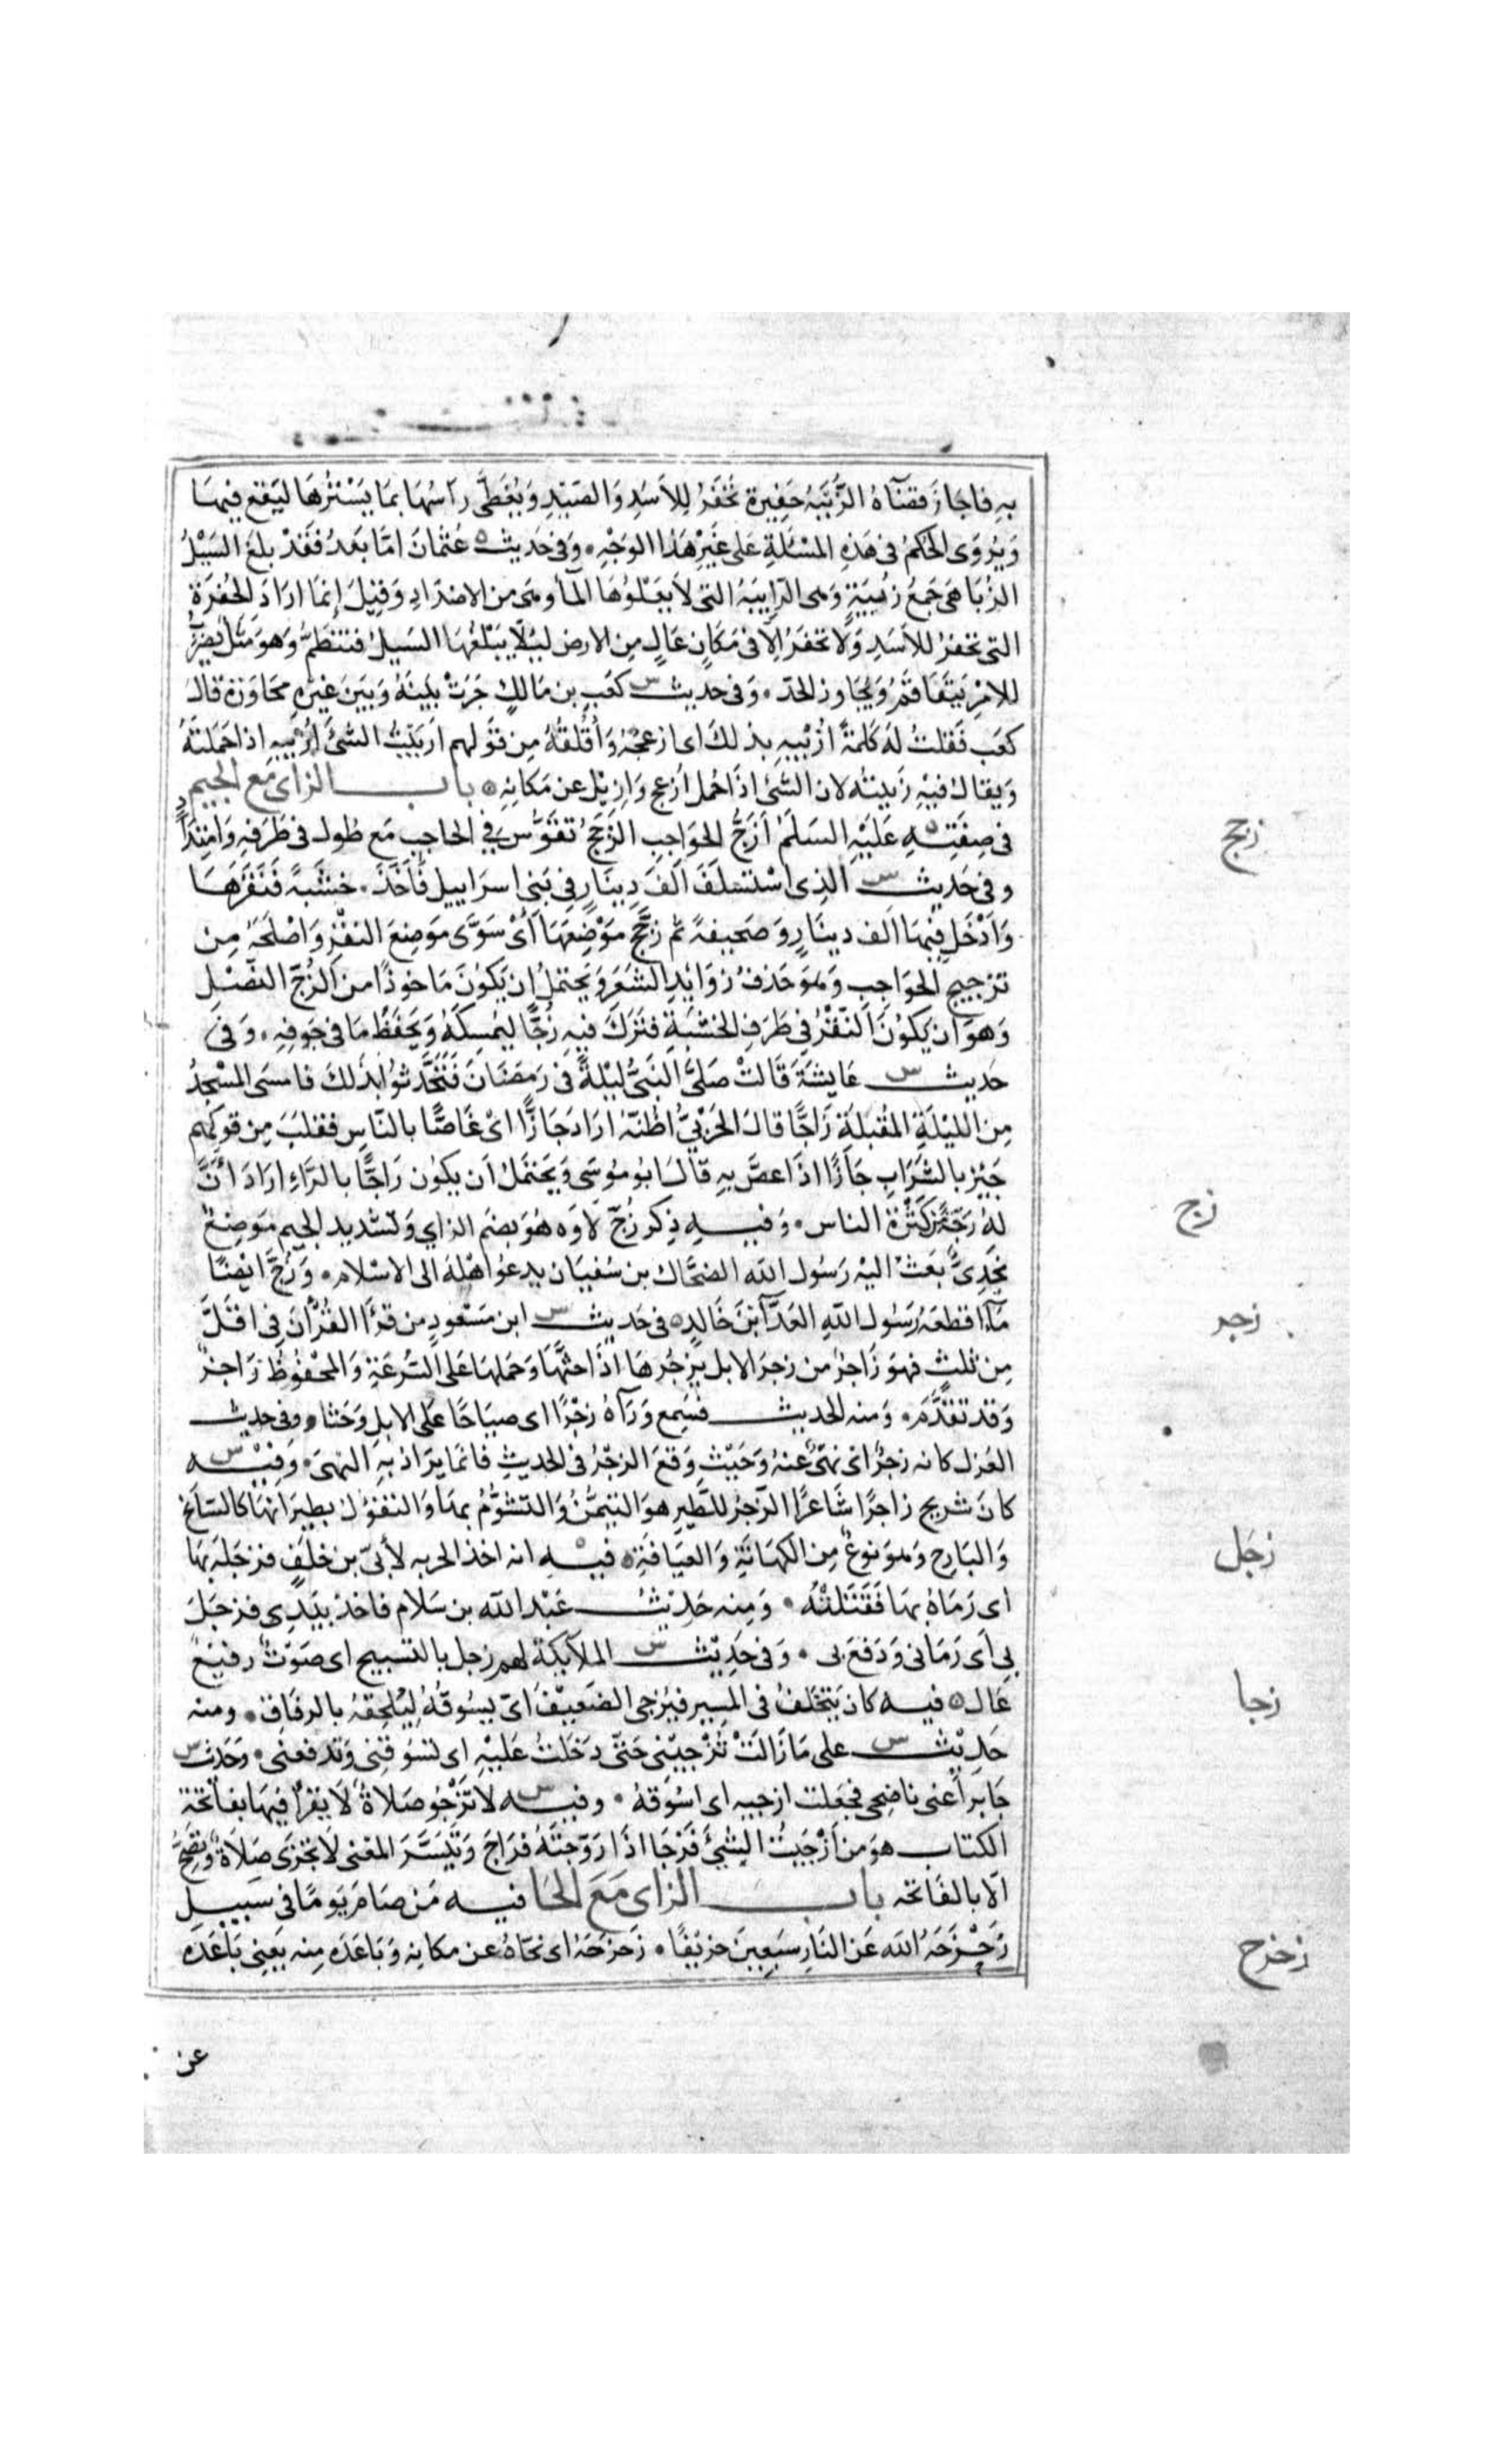 بِهِ فاجَازَ قضَآهُ الزُّبْيَةُ حَفِيرة تُحْفَرُ لِلأسَدِ وَالصَّيْدِ وَيُغَطَّى رَاسُهَا بمَا يَسْتُرُهَا ليَقَعَ فِيهَا
وَيُروَى الحُكْمُ فى هَذِهِ المَسْئَلَةِ عَلى غَيْرِ هَذا الوَجْهِ ۰ وَفى حَديث ه عُثمَانَ امَّا بَعَدُ فَقَدْ بلغَ السَيْلُ
الزُبَا هىَ جَمعُ زُبْيَةٍ وَهى الرَّابِيَةُ التى لاَ يَعْلُوهَا المآءُ وهىَ من الاضدَادِ وَقِيلَ إنمَا ارَادَ الحُفرَة
التى تحفرُ للأسَدِ وَلا تحفَرُ إلّا فى مَكَانٍ عَالٍ مِنَ الارض ليُلّا يَبْلُغُهَا السَيلُ فتنطَمُّ وَهوَ مَثَل يُضْرَبُ
للامْرِ يَتَفَاقمُ وَيُجَاوز الحَدّ ۰ وَفى حديث س كعَب بن مَالكٍ جَرَتْ بَينَهُ وَبَيَنَ غيْرِهِ مُحَاوَرَة قالَ
كعَب فَقلتُ لهُ كَلمَةً أُزْبِيهِ بذلكَ اى ازعجُهُ وَأُقْلقهُ مِن قَولهم ازبَيْتُ الشَّىَ أُزْبِيهِ اذا حَمَلتَهُ
وَيقالُ فيْهِ زَبيتُه لان الشَّئ اذا حُمل أُزعج وَازِيْل عن مَكانِهِ ه باب الزاى مَع الجيم
فى صِفَتِهِ ه عَلَيْهِ السلَمُ أزَجُّ الحوَاجِبِ الزَّجَجُ تقَوُّسٌ فِي الحاجب مَع طُول فى طَرَفهِ وَامتِدَادٍ
وفى حَديث س الذِى اسْتسْلفَ ألفَ دِينَارٍ فِى بَنى اسرَاييل فأخَذَ ۰ خشَبةً فَنَقَرَهَا
وَأدْخَلَ فِيْهَا ألفَ دينَارٍ وَصَحيفةً ثم زجَّجَ مَوْضِعَهَا أىْ سَوَّى مَوضِعَ النقْرِ وَاصْلحَهُ مِن
تزجيج الحَوَاجِبِ وَهوَ حَذفُ زوَايْدِ الشعَر وَيَحتمِلُ ان يَكونَ مَاخوذًا مِن الزُجّ النصْلِ
وَهوَ ان يَكُونَ النَّقْرُ فِى طَرَفِ الخشَبةِ فترَكَ فِيهِ زُجًّا ليُمسِكَهُ وَيحَفظُ مَا فى جَوفِهِ ۰ وَفى
حَديث س عَايشَةَ قَالَتْ صَلىَّ النَبىُّ ليْلةً فى رَمضَانَ فَتَحَدَّثوُا بذَلكَ فامسَى المسْجدُ
مِنَ الليْلةِ المقْبلةِ زَاجًّا قالَ الحَرْبيُّ اظُنّهُ ارَادَ جَازًّا اىْ غَاصًّا بالنّاسِ فقلبَ مِن قولِهِم
جَئِزَ بالشَرَابِ جَأزًا اذَا غصَّ بهِ قالَ ابُو مُوسَى وَيَحتمَلُ أن يكُون رَاجًّا بالرَّاءِ ارَادَ أنَّ
لهُ رَجّةً مِن كَثرةِ الناس ۰ وَفيهِ ذِكر زُجّ لاوَه هُوَ بضَم الزاي وَتشديد الجيم مَوضِعٌ
نجدِىٌّ بَعَثَ اليْهِ رَسُولُ الله الضحَّاك بن سُفيَان يدعُوا اهْلهُ الى الاسْلام ۰ وَزُجّ ايضًا
مَآءٌ اقطعَهُ رَسُولُ اللهِ العَدّآ ابْنَ خَالدٍ ه فى حَديث س ابن مَسْعُودٍ من قرَأَ القُرْآنَ فِى اقَلَّ
مِن ثَلثٍ فهوَ زَاجزٌ من زجرَ الابل يَزجُرهَا اذَا حَثّهَا وَحَملهَا عَلى السُّرعَةِ وَالمحَفُوظُ رَاجزٌ
وَقد تقَدَّمَ ۰ وَمنه الحديث فسَمِع وَرَآهُ زجْرًا اى صيَاحًا عَلى الابل وَحَثا ۰ وفى حديث
العَزل كانه زجرٌ اى نَهَى عَنهُ وَحَيْث وَقعَ الزجْرُ فى الحَديثِ فانمَا يرَادُ بهِ النَهىُ ۰ وَفيْهِ س
كانَ شريح زاجرًا شَاعرًا الزَّجرُ للطَّيرِ هوَ التيَمُّنُ وَالتشؤُّمُ بهَا وَالتفَؤُل بطيرَانهَا كالسَانِح
وَالبَارِح وَهوَ نوعٌ مِنَ الكهَانَةِ وَالعِيَافَةِ ه فيْهِ انه اخذ الحربه لأبىّ بن خلفٍ فزجَلهُ بهَا
اى رَمَاهُ بهَا فَقَتَلتْهُ ۰ وَمِنه حَديث عَبْد الله بن سَلام فاخذ بيَدِى فزجَلَ
بِى أى رَمَانى وَدَفعَ بى ۰ وَفى حَدِيْث س الملآئِكة لهم زجل بالتسبيح اى صَوْتٌ رفيعٌ
عَال ه فيه كان يَتخلفُ فى المسِير فيُزجى الضعيفَ اىْ يسُوقُهُ لِيُلحِقهُ بالرفَاق ۰ ومنه
حَديْث س على مَا زَالَتْ تُزْجِيْنى حَتّى دَخلتُ عَليْهِ اى تسُوقنِى وَتدفعنى ۰ وَحَديث س
جَابر أعنى ناضِحى فجعَلت ازجيه اى اسُوقهُ ۰ وفيه س لا تزْجُو صَلاةٌ لاَ يقرَأُ فِيهَا بفَاتحَة
الكتاب هوَ من أزْجَيْتُ الشئَ فَزَجَا اذَا رَوّجتهُ فرَاجَ وَتَيَسَّرَ المَعْنى لا تجزَى صَلاةٌ وَتصِحُّ
الّا بالفاتحه باب الزاى مَعَ الحَا فيه مَن صَامَ يَومًا فى سَبيلِ
زَحْزَحَهُ الله عَن النَارِ سَبعِينَ خريْفًا ۰ زحزحَهُ اى نحّاهُ عن مكانِهِ وَبَاعَدَه مِنه يَعنِى بَاعَدَه
عن
زجج
زج
زجر
زجَل
زجا
زحزح